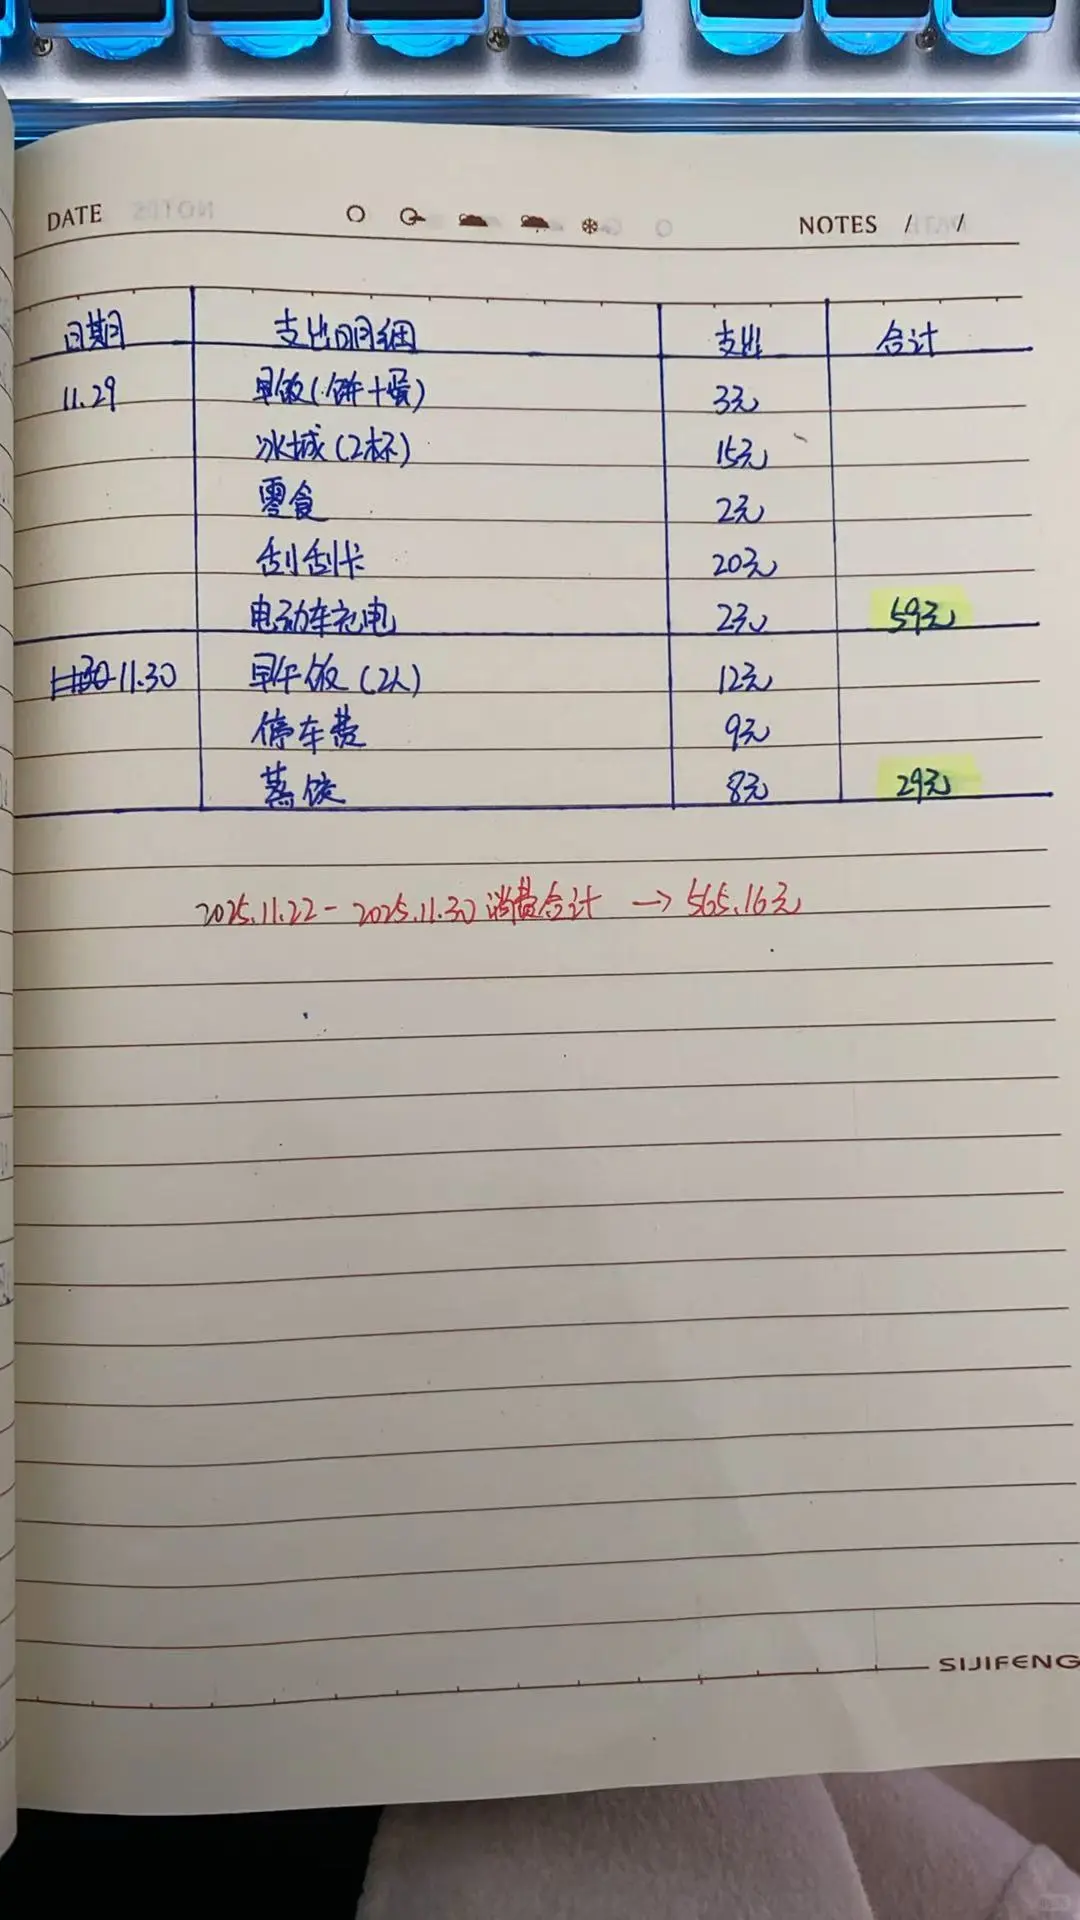 DATE NOTES / /
日期 支出明细 支出 合计
11.29 早饭(饼+蛋) 3元
冰城(2杯) 15元
零食 2元
刮刮卡 20元
电动车充电 2元 59元
11.30 11.30 早午饭(2人) 12元
停车费 9元
蒸饺 8元 29元
2025.11.22-2025.11.30消费合计 → 565.16元
SIJIFENG